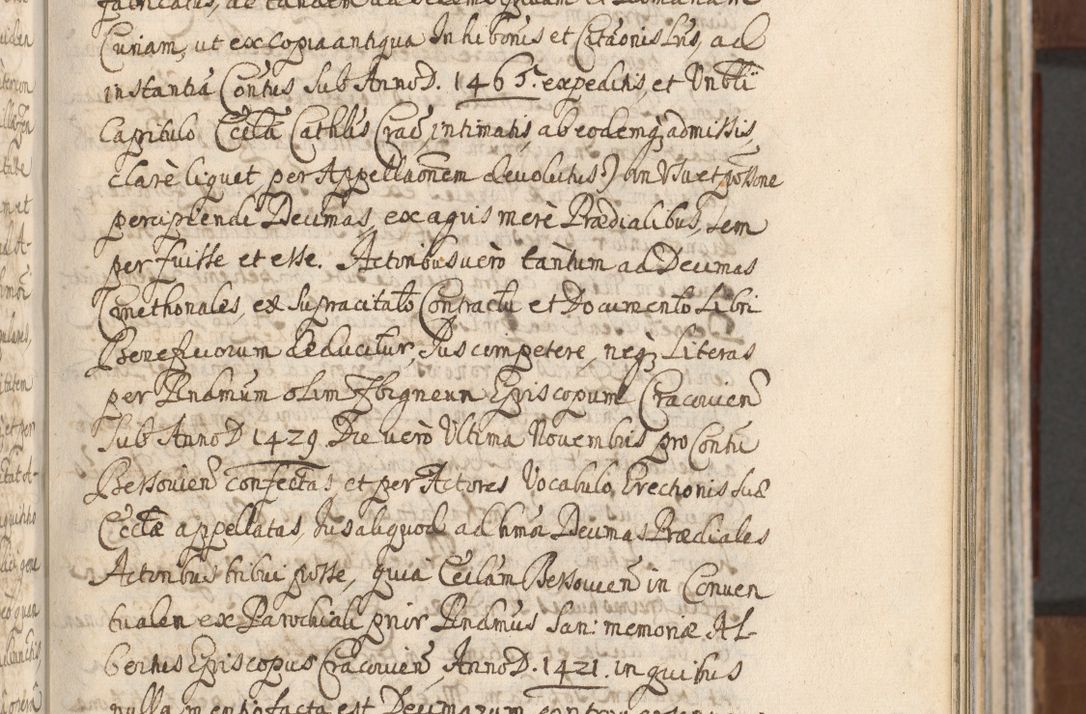 Curiam, ut ex copia antiqua Inhibonis et Citaonis Lrs, ad
instantiã Contus sub Anno D. 1465. expeditis, et Vnbli
Capitulo Cclã Cathlis Crac intimatis, ab eodemq admissis,
clarè liquet, per Appellaonem devolutus) in Vsu et possone
percipiendi Decimas, ex agris merè Prædialibus, sem
per fuisse et esse. Actoribus verò tantum ad Decimas
Cmethonales, ex supracitato Contractu et Documento Libri
Beneficiorum deducitur, Jus competere, neq; Literas
per Rndmum olim Zbigneum Episcopum Cracovien
sub Anno D 1429. Die verò Ultima Novembris pro Contu
Bessovien confectas et per Actores Vocabulo Erectionis suæ
Ecclæ appellatas, Jus aliquod ad hmoi Decimas Prædiales
Actoribus tribui posse, quia Cclam Bessovien in Conven
tualem ex Parochiali prior Rndmus San: memoriæ Al-
bertus Episcopus Cracovien, Anno D. 1421. in quibus
nulla mentio facta est Decimarum